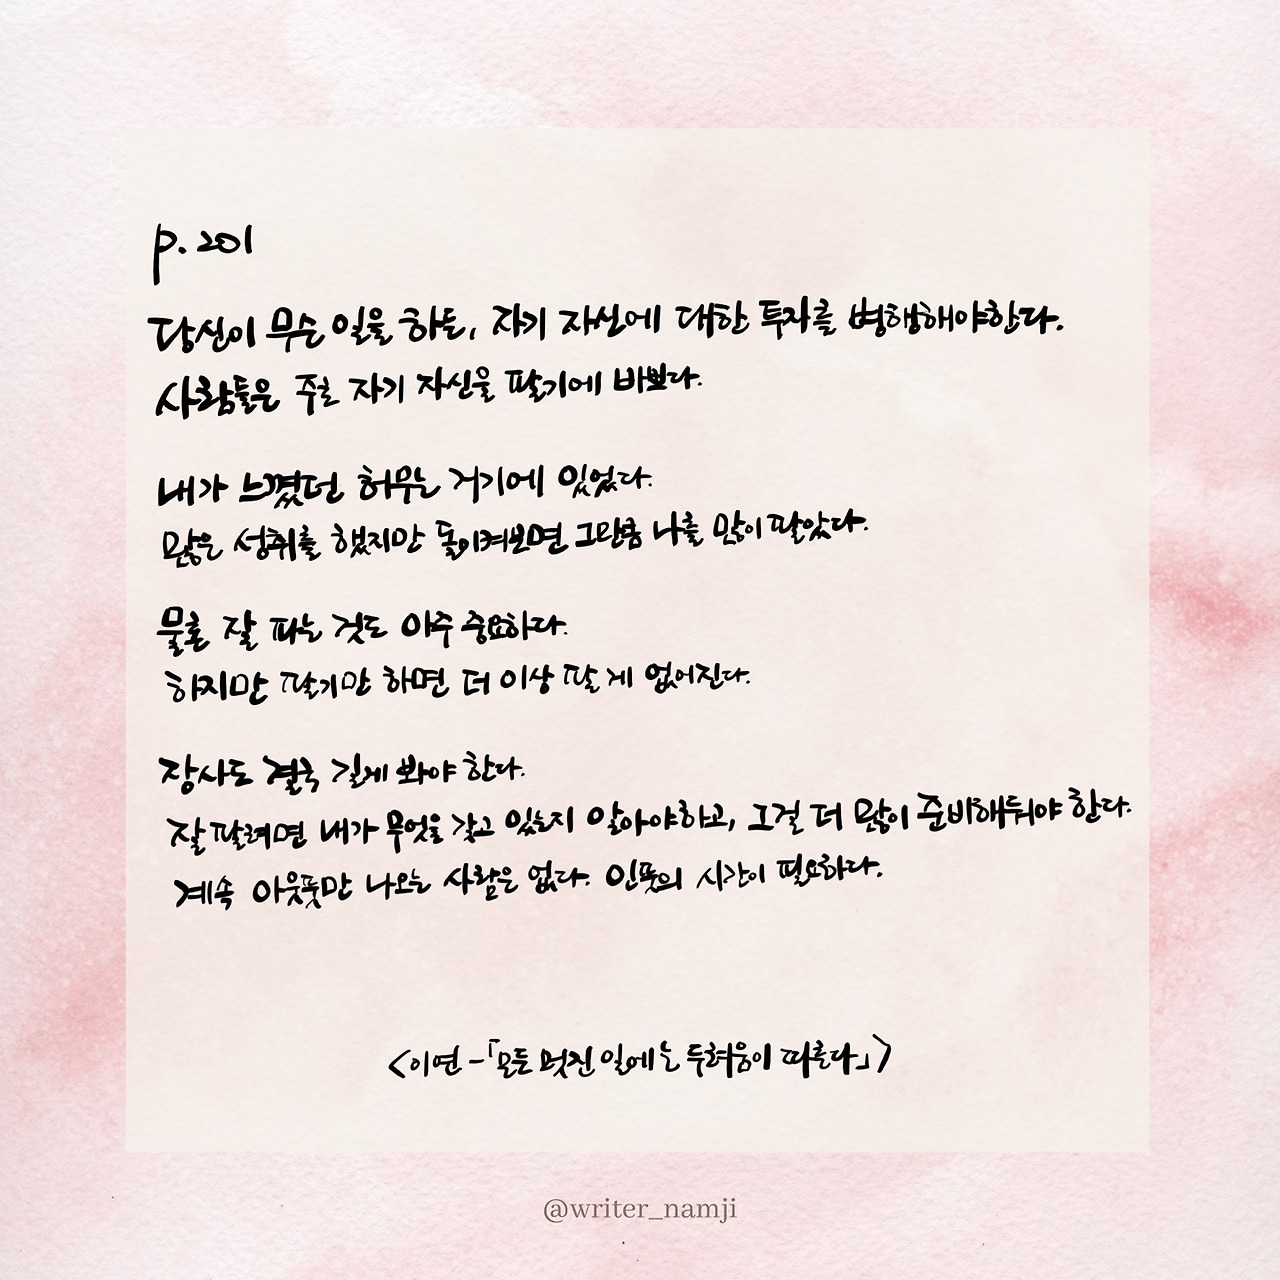 p. 201
당신이 무슨 일을 하든, 자기 자신에 대한 투자를 병행해야한다.
사람들은 주로 자기 자신을 팔기에 바쁘다.
내가 느꼈던 허무는 거기에 있었다.
많은 성취를 했지만 돌이켜보면 그만큼 나를 많이 팔았다.
물론 잘 파는 것도 아주 중요하다.
하지만 팔기만 하면 더 이상 팔 게 없어진다.
장사도 결국 길게 봐야 한다.
잘 팔려면 내가 무엇을 갖고 있는지 알아야하고, 그걸 더 많이 준비해둬야 한다.
계속 아웃풋만 나오는 사람은 없다. 인풋의 시간이 필요하다.
<이연 -「모든 멋진 일에는 두려움이 따른다」>
@writer_namji